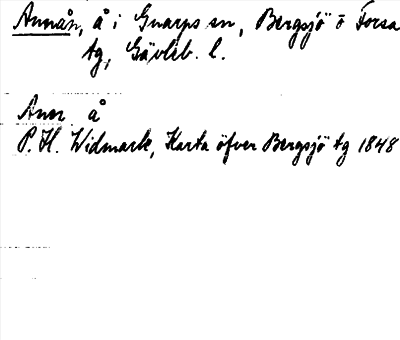 Annån, å i Gnarps sn, Bergsjö o Forsa
tg, Gävleb. l.
Aner å
P. H. Widmark, Karta öfver Bergsjö tg 1848